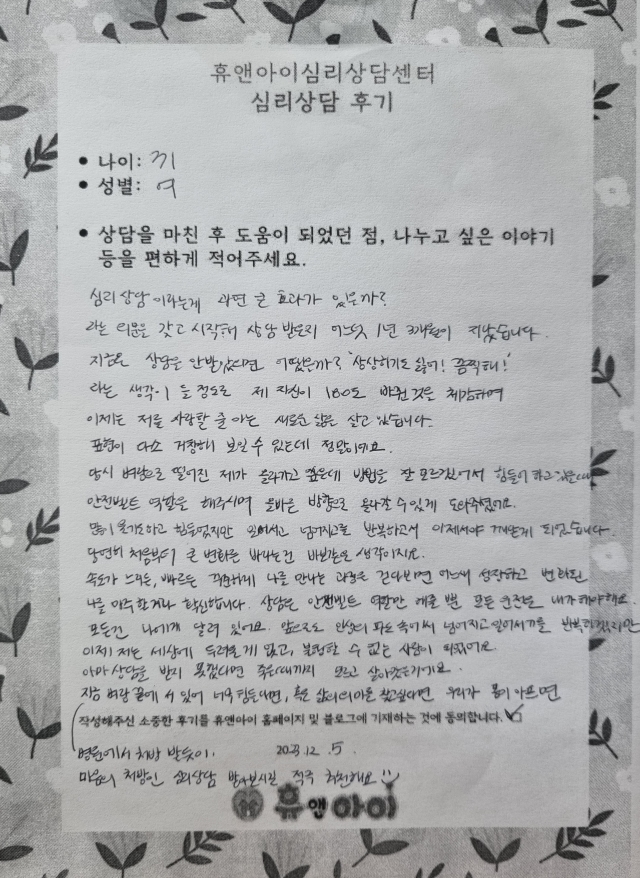 휴앤아이심리상담센터
심리상담 후기
• 나이:
• 성별: 여
• 상담을 마친 후 도움이 되었던 점, 나누고 싶은 이야기
등을 편하게 적어주세요.
심리상담이라는게 과연 큰 효과가 있을까?
라는 의문을 갖고 시작해서 상담 받은지 어느덧 1년 3개월이 지났습니다.
지금은 상담을 안받았다면 어땠을까? '상상하기도 싫어! 끔찍해!'
라는 생각이 들 정도로 제 자신이 180도 바뀐것을 체감하며
이제는 저를 사랑할 줄 아는 새로운 삶을 살고 있습니다.
표현이 다소 거창해 보일 수 있는데 정말이에요.
당시 벼랑으로 떨어진 제가 올라가고 싶은데 방법을 잘 모르겠어서 힘들어 하고
안전벨트 역할을 해주시며 올바른 방향으로 올라갈 수 있게 도와주셨어요.
많이 울기도하고 힘들었지만 일어서고 넘어지고를 반복하고서 이제서야 깨닫게 되었습니다.
당연히 처음부터 큰 변화를 바라는건 바보같은 생각이지요.
속도가 느리든, 빠르든 꾸준하게 나를 만나는 과정을 걷다보면 어느새 성장하고 변화된
나를 마주할거라 확신합니다. 상담은 안전벨트 역할만 해줄 뿐 모든 운전은 내가 해야해요.
모든건 나에게 달려 있어요. 앞으로도 인생의 파도 속에서 넘어지고 일어서기를 반복하겠지만
이제 저는 세상에 두려울게 없고, 불평할 수 없는 사람이 되었어요.
아마 상담을 받지 못했다면 죽을때까지 모르고 살아갔을거에요.
지금 벼랑 끝에 서 있어 너무 힘들다면, 혹은 삶의 의미를 찾고싶다면 우리가 몸이 아프면
작성해주신 소중한 후기를 휴앤아이 홈페이지 및 블로그에 기재하는 것에 동의합니다.
병원에서 처방 받듯이. 2023.12.5.
마음의 처방인 심리상담 받아보시길 적극 추천해요
휴앤아이